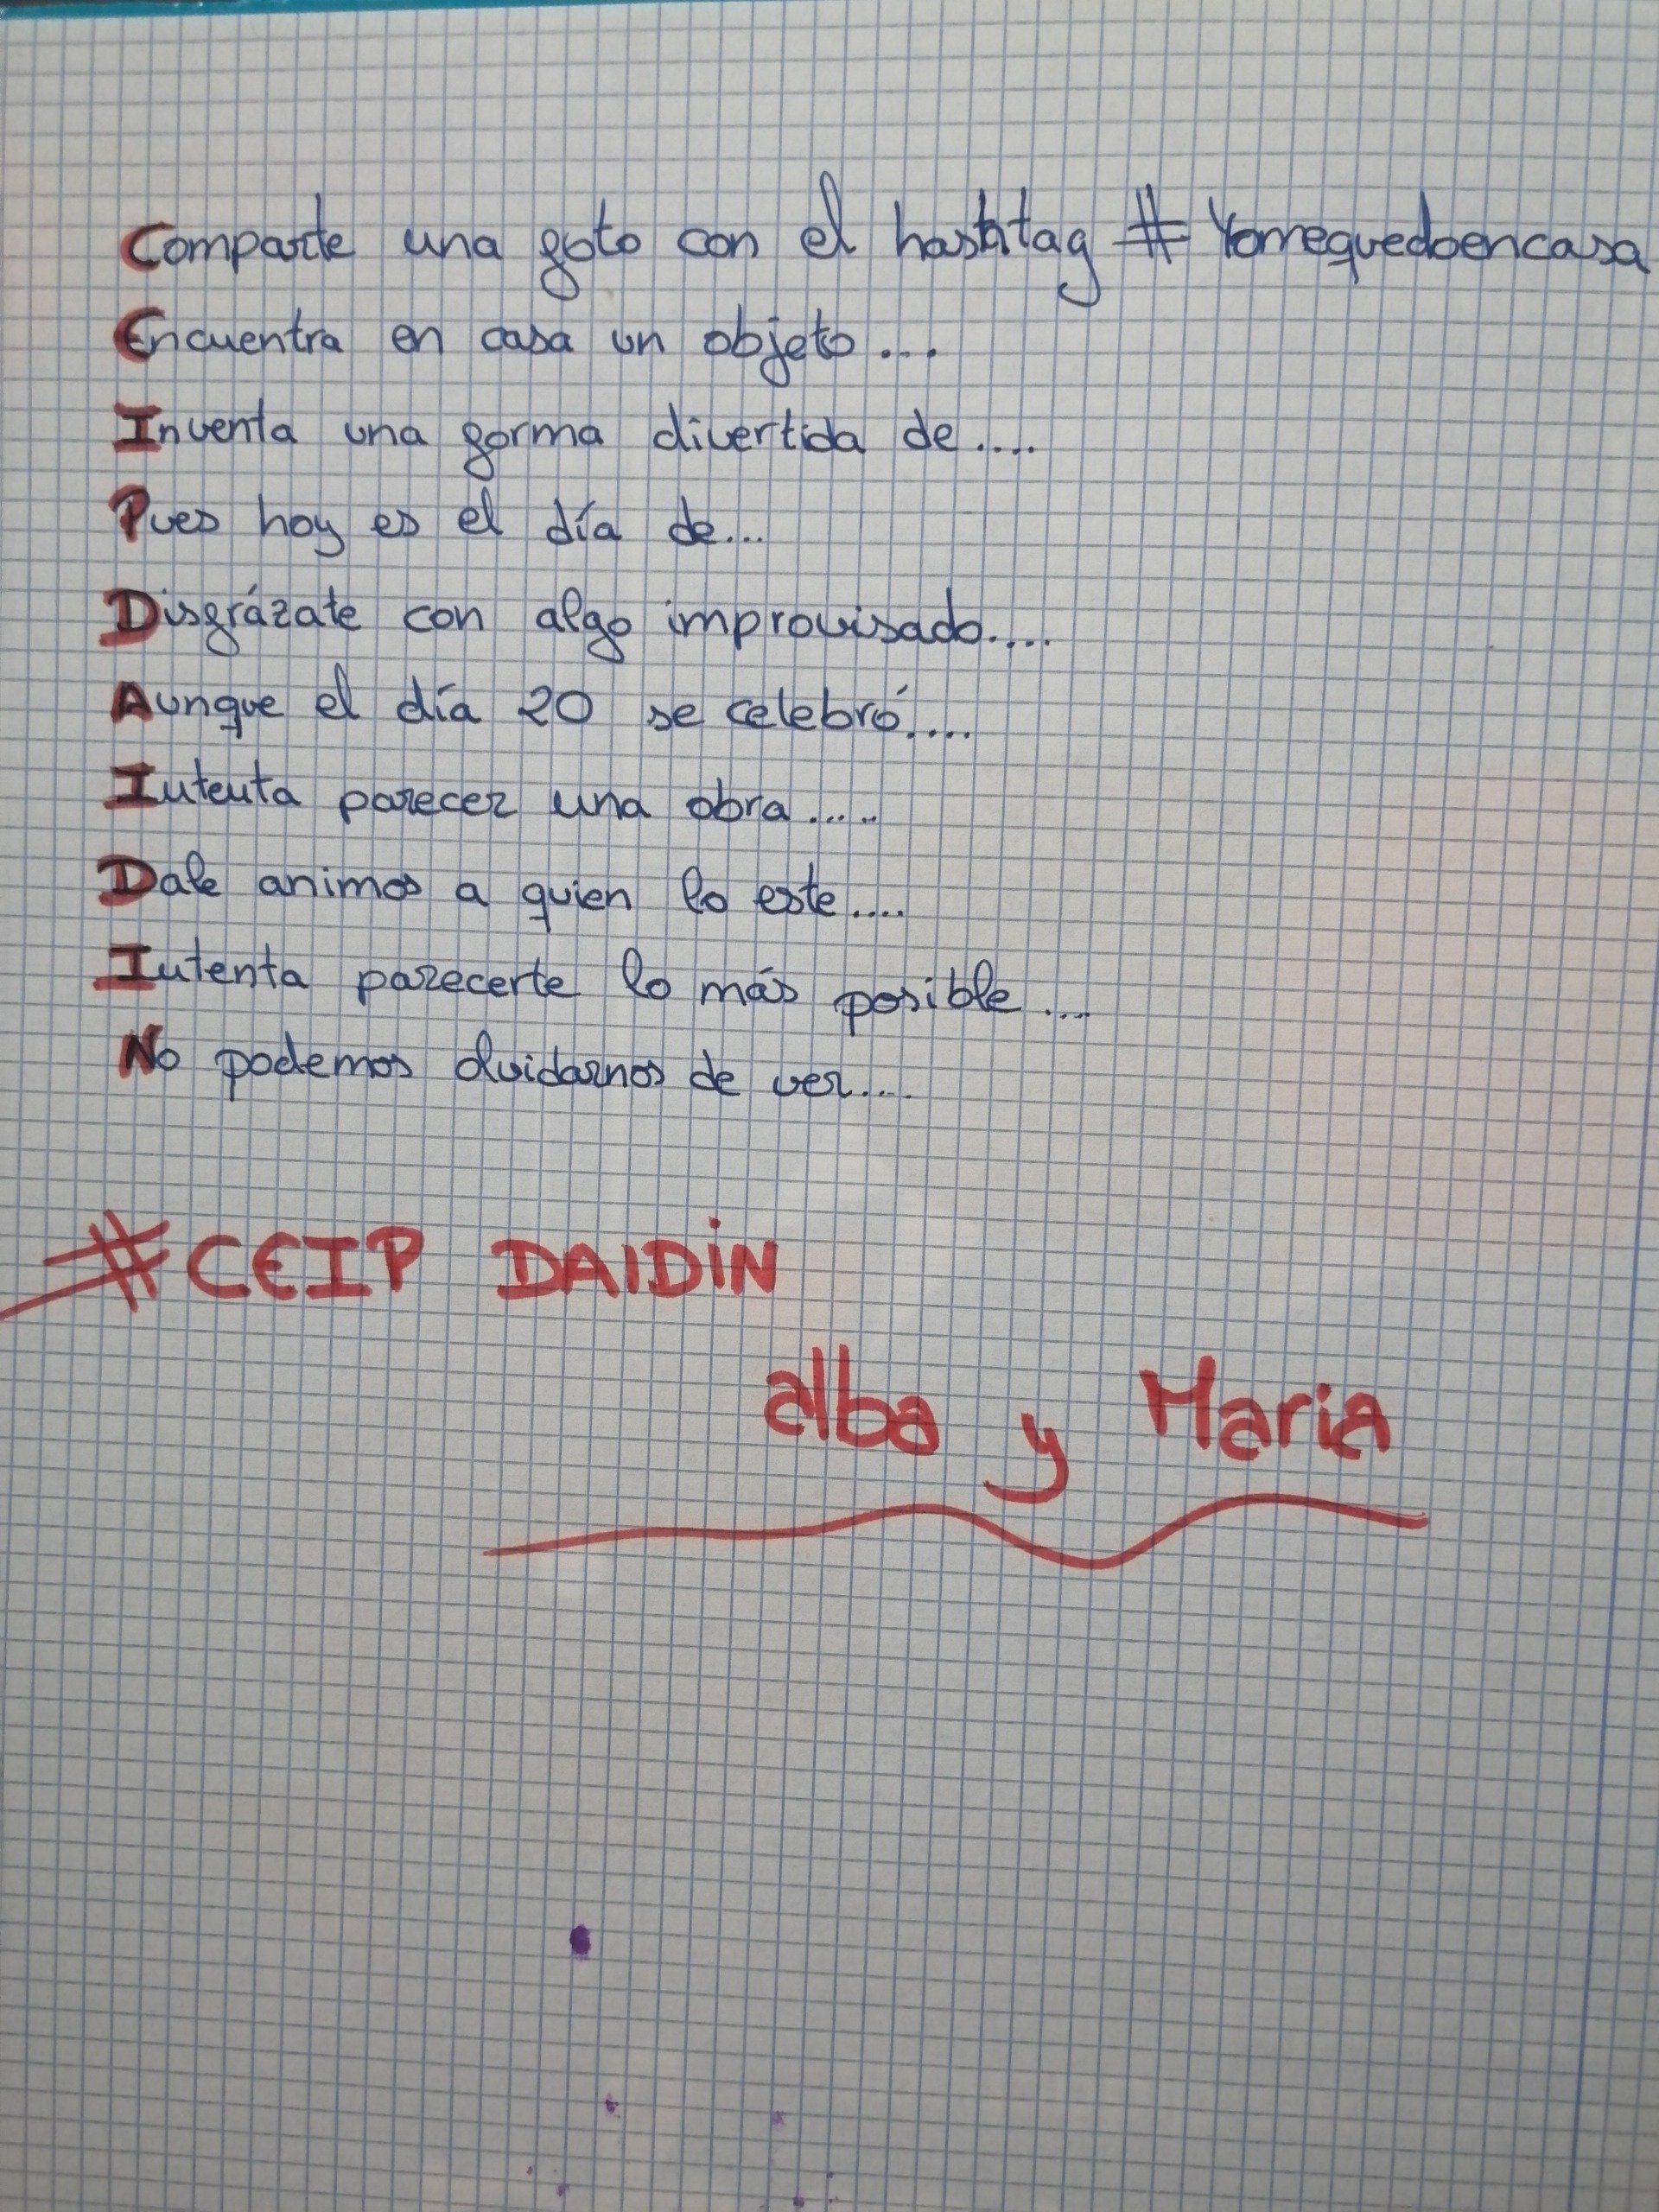 Comparte una foto con el hashtag #Yomequedoencasa
Encuentra en casa un objeto...
Inventa una forma divertida de....
Pues hoy es el día de...
Disfrázate con algo improvisado....
Aunque el día 20 se celebró....
Intenta parecer una obra.....
Dale animos a quien lo este....
Intenta parecerte lo más posible....
No podemos olvidarnos de ver....
#CEIP DAIDIN
alba y Maria